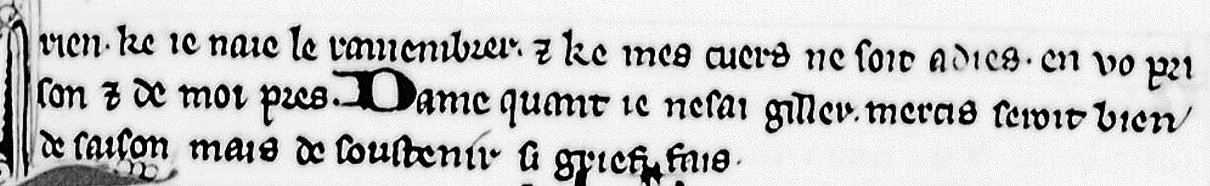 rien · ke ie naie le ramembrer · ⁊ ke mes cuers ne soit adies · en vo pri
son ⁊ de moi pres · Dame quant ie nesai giller · mercis seroit bien
de saison mais de soustenir si grief fais ·